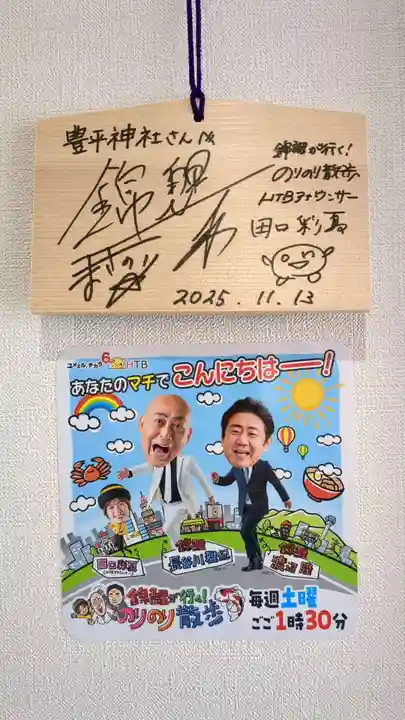 豊平神社さん江
錦鯉
まさのり
錦鯉が行く!
のりのり散歩
HTBアナウンサー
田口彩夏
2025.11.13
ユメミル、チカラ 6 HTB
あなたのマチで こんにちはーー!
田口彩夏
錦鯉
長谷川雅紀
錦鯉
渡辺隆
錦鯉が行く!
のりのり散歩
毎週土曜
ごご1時30分